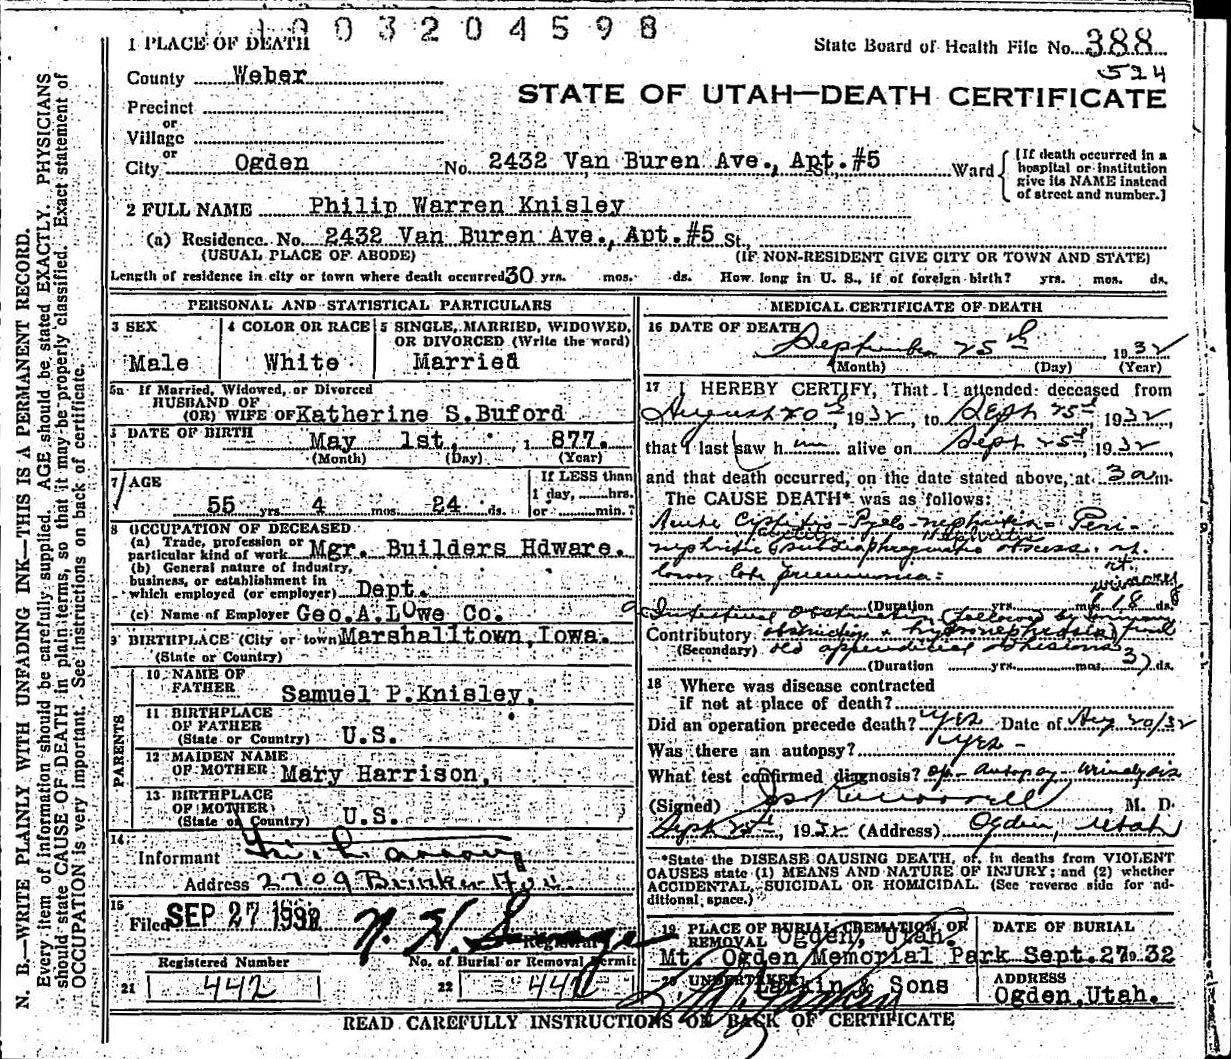 1003204598
1 PLACE OF DEATH
State Board of Health File No. 388
524
County Weber
STATE OF UTAH—DEATH CERTIFICATE
Precinct
or
Village
or
City Ogden No. 2432 Van Buren Ave., Apt.#5 St., Ward
[If death occurred in a hospital or institution give its NAME instead of street and number.]
2 FULL NAME Philip Warren Knisley
(a) Residence. No. 2432 Van Buren Ave., Apt.#5 St.,
(USUAL PLACE OF ABODE) (IF NON-RESIDENT GIVE CITY OR TOWN AND STATE)
Length of residence in city or town where death occurred 30 yrs. mos. ds. How long in U. S., if of foreign birth? yrs. mos. ds.
PERSONAL AND STATISTICAL PARTICULARS
3 SEX
Male
4 COLOR OR RACE
White
5 SINGLE, MARRIED, WIDOWED, OR DIVORCED (Write the word)
Married
5a If Married, Widowed, or Divorced
HUSBAND OF
(OR) WIFE OF Katherine S.Buford
DATE OF BIRTH May 1st, 1 877.
(Month) (Day) (Year)
7 AGE
55 yrs. 4 mos. 24 ds.
If LESS than
1 day, hrs.
or min.?
8 OCCUPATION OF DECEASED
(a) Trade, profession or
particular kind of work Mgr. Builders Hdware.
(b) General nature of industry,
business, or establishment in
which employed (or employer) Dept.
(c) Name of Employer Geo.A.LOwe Co.
9 BIRTHPLACE (City or town) Marshalltown, Iowa.
(State or Country)
PARENTS
10 NAME OF
FATHER Samuel P.Knisley,
11 BIRTHPLACE
OF FATHER
(State or Country) U.S.
12 MAIDEN NAME
OF MOTHER Mary Harrison,
13 BIRTHPLACE
OF MOTHER
(State or Country) U.S.
14
Informant
Address 2709 Brinker Ave.
15
Filed SEP 27 1932
Registrar
Registered Number No. of Burial or Removal Permit
21 442 22 442
MEDICAL CERTIFICATE OF DEATH
16 DATE OF DEATH
September 25th 1932
(Month) (Day) (Year)
17 I HEREBY CERTIFY, That I attended deceased from
August 20th, 1932, to Sept 25th 1932
that I last saw him alive on Sept 25th, 1932
and that death occurred, on the date stated above, at 3am.
The CAUSE DEATH* was as follows:
Acute Cystitis - Pyelo-nephritis - Peri-
nephritic & subdiaphragmatic abscess. rt.
lower lobe pneumonia:
(Duration yrs. mos. 18 ds.
Intestinal Obstruction
Contributory obstruction & hydronephrosis
(Secondary) old appendicial adhesions
(Duration yrs. mos. 37 ds.
18 Where was disease contracted
if not at place of death?
Did an operation precede death? Yes Date of Aug 20/32
Was there an autopsy? Yes -
What test confirmed diagnosis? Op - Autopsy Urinalysis
(Signed) M. D.
Sept 25th, 1932 (Address) Ogden, Utah
*State the DISEASE CAUSING DEATH, or, in deaths from VIOLENT
CAUSES state (1) MEANS AND NATURE OF INJURY; and (2) whether
ACCIDENTAL, SUICIDAL OR HOMICIDAL. (See reverse side for ad-
ditional space.)
19 PLACE OF BURIAL, CREMATION, OR
REMOVAL Ogden, Utah.
Mt. Ogden Memorial Park
DATE OF BURIAL
Sept.27, 32
20 UNDERTAKER
Larkin & Sons
ADDRESS
Ogden,Utah.
READ CAREFULLY INSTRUCTIONS ON BACK OF CERTIFICATE
N. B.—WRITE PLAINLY WITH UNFADING INK—THIS IS A PERMANENT RECORD.
Every item of information should be carefully supplied. AGE should be stated EXACTLY. PHYSICIANS
should state CAUSE OF DEATH in plain terms, so that it may be properly classified. Exact statement of
OCCUPATION is very important. See instructions on back of certificate.